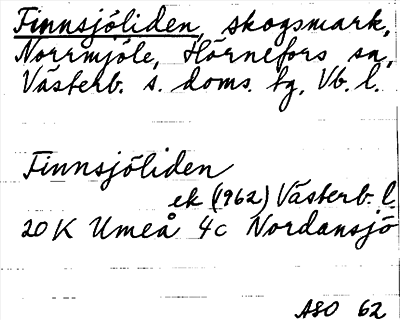 Finnsjöliden, skogsmark,
Norrmjöle, Hörnefors sn,
Västerb. s. doms. tg, Vb. l.
Finnsjöliden
ek (1962) Västerb. l.
20K Umeå 4c Nordansjö
ASO 62